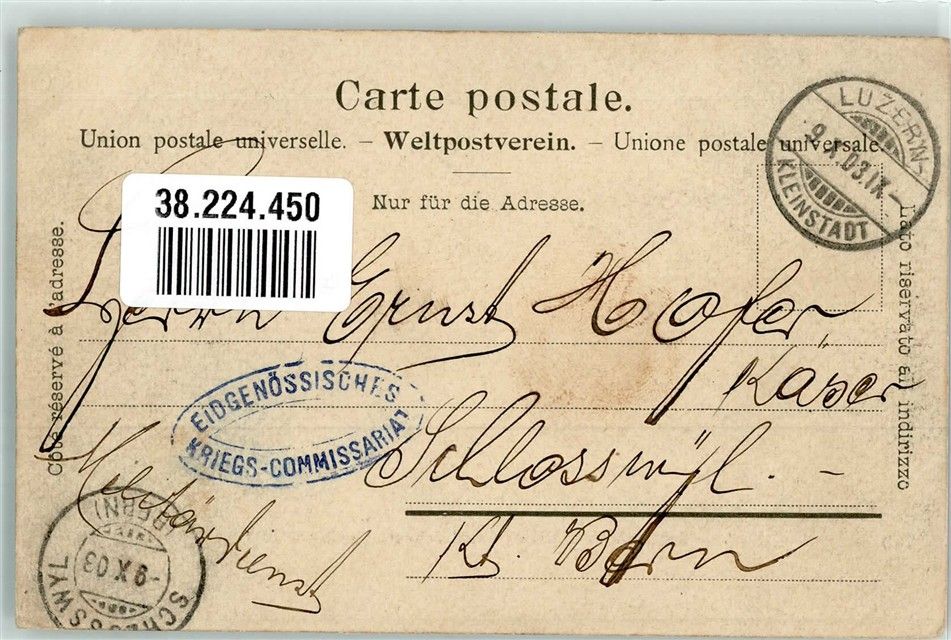 Carte postale.
Union postale universelle. – Weltpostverein. – Unione postale universale.
Nur für die Adresse.
LUZERN
9.X.03.IX–
KLEINSTADT
38.224.450
Côté réservé à l'adresse.
Lato riservato al indirizzo
Herrn Ernst Hofer
Käser
EIDGENÖSSISCHES
KRIEGS-COMMISSARIAT
Schlosswyl. –
Militärdienst
Kt. Bern
SCHLOSSWYL
(BERN)
-9 X 03